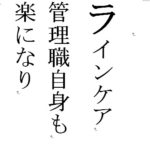 ラインケア
管理職自身も
楽になり